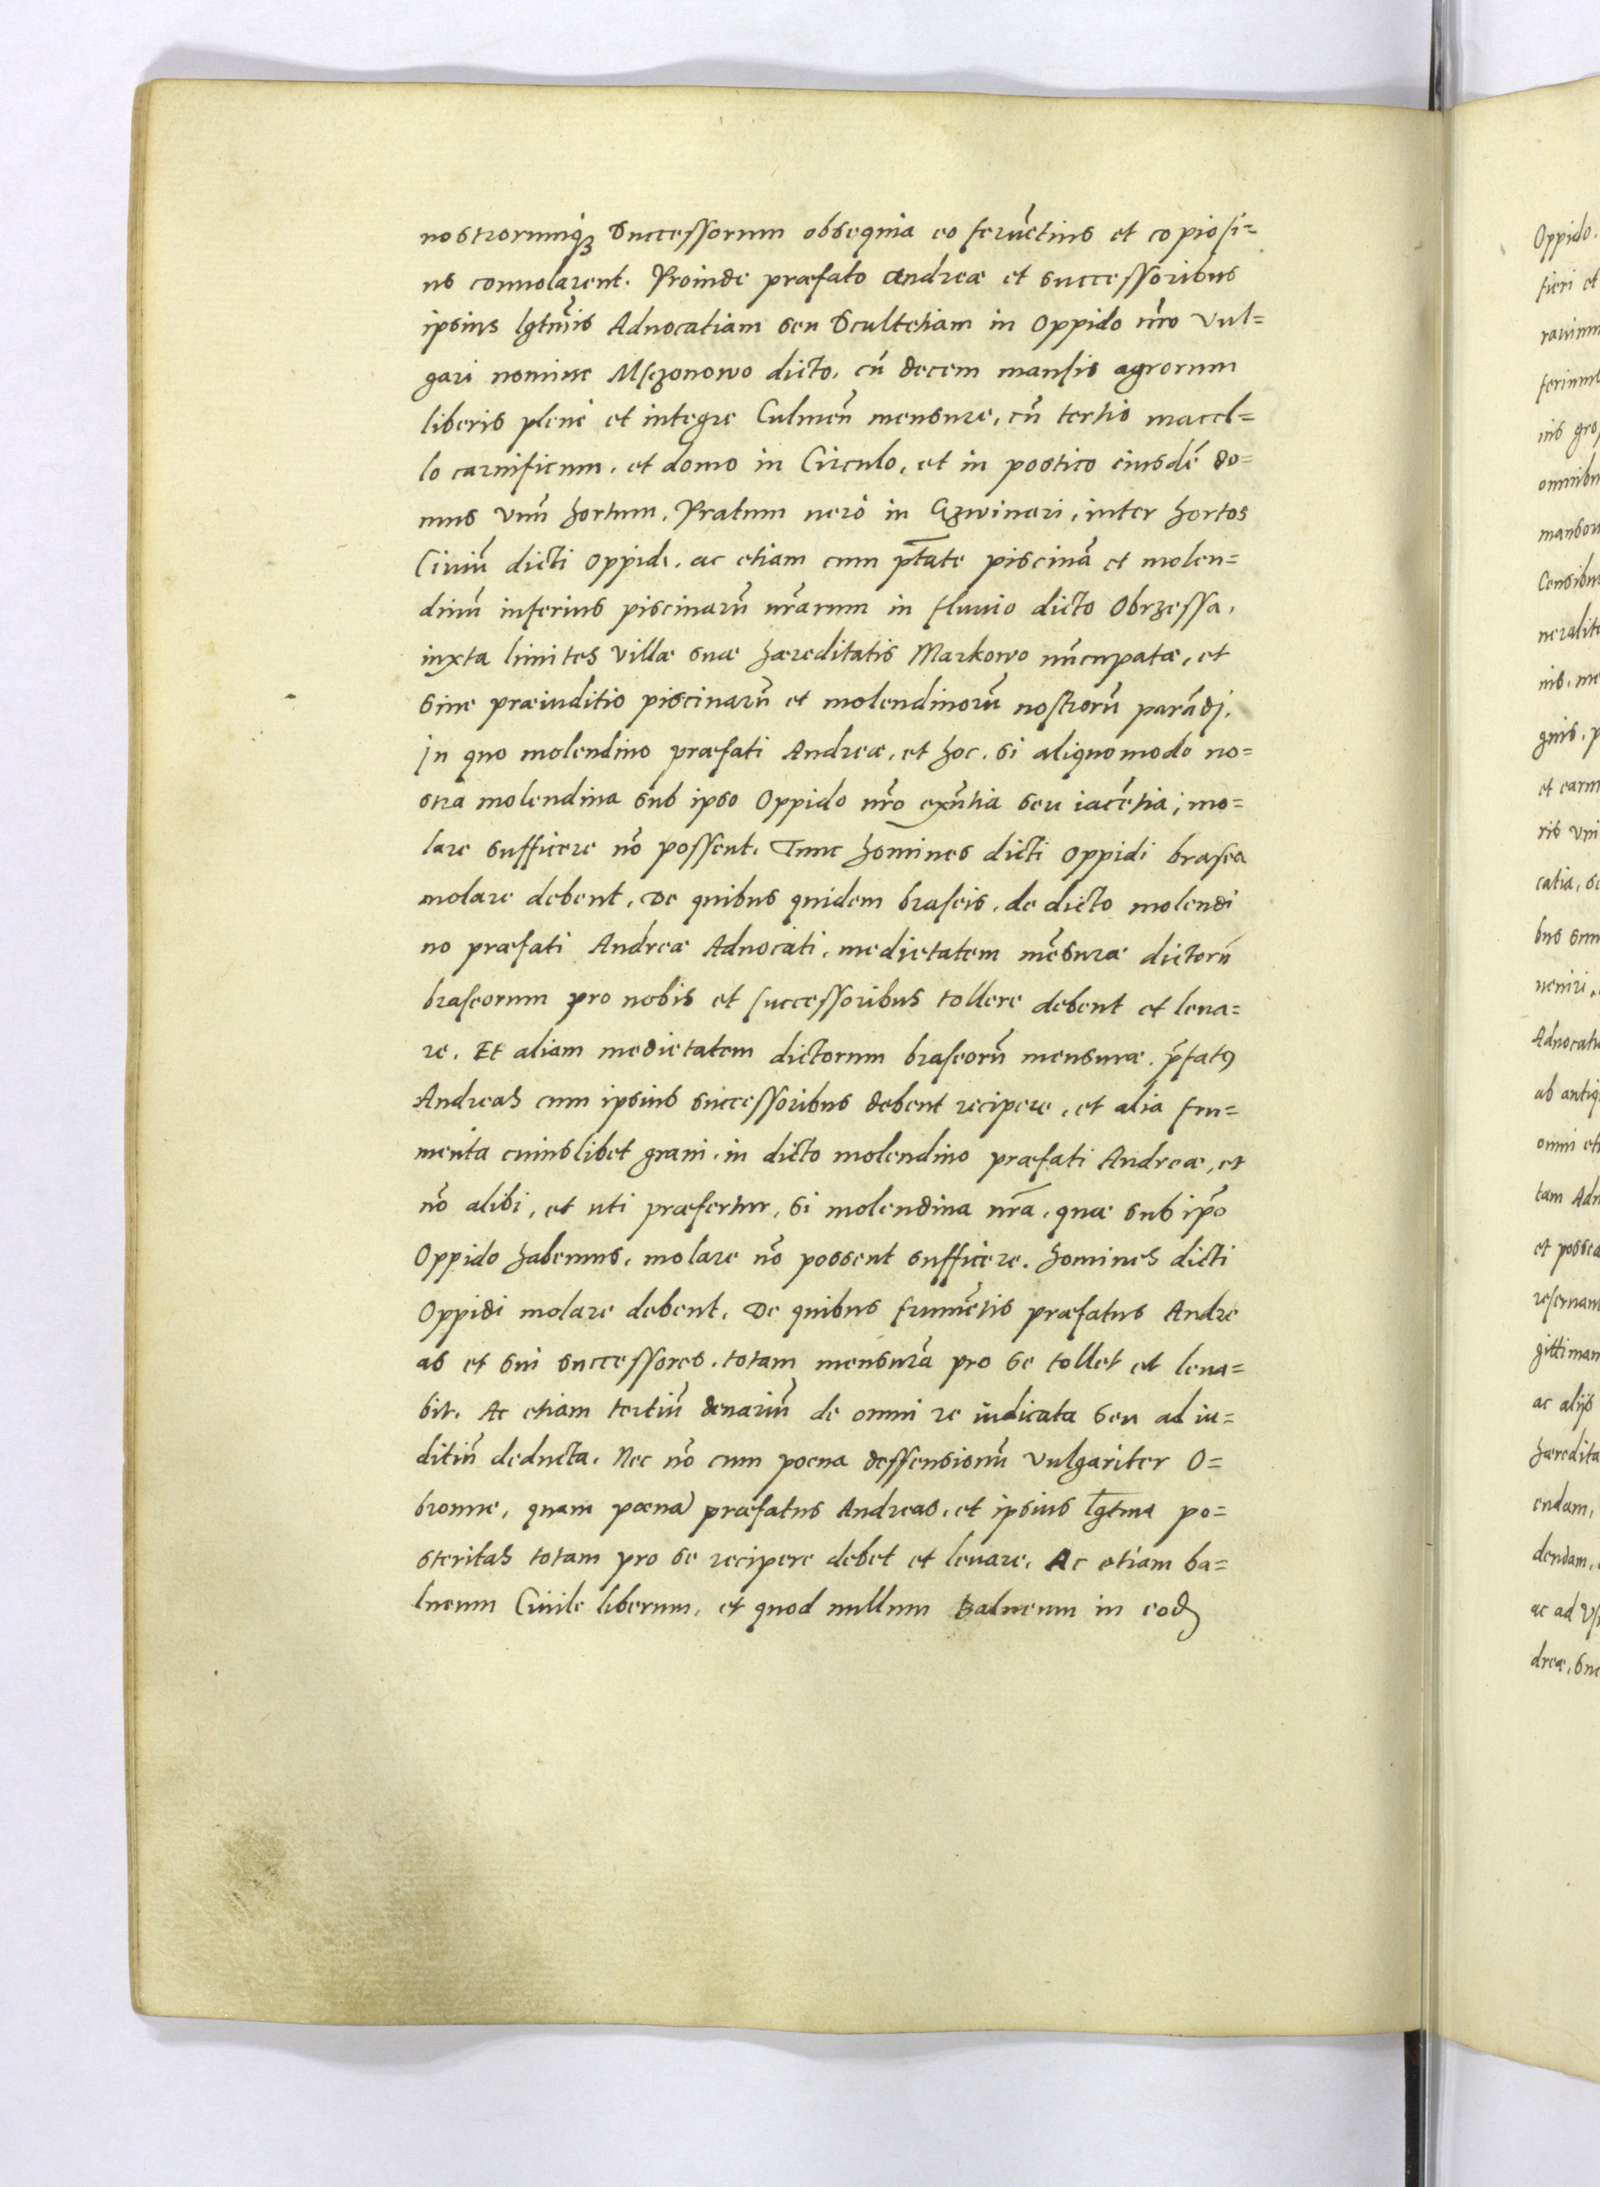 nostrorumqȝ Successorum obsequia eo feruẽtius et copiosi=
us conuolarent. Proinde præfato Andreæ et successoribus
ipsius lgtm̃is Aduocatiam seu Scultetiam in Oppido nr̃o vul=
gari nomine Msczonowo dicto, cũ decem mansis agrorum
liberis plenè et integre Culmeñ mensure, cũ tertio maccel=
lo carnificum, et domo in Circulo, et in postico eiusdẽ do=
mus vnũ hortum. Pratum uerò in Czwineri, inter hortos
Ciuiũ dicti Oppidi, ac etiam cum pt̃ate piscinã et molen=
dinũ inferius piscinarũ nr̃arum in fluuio dicto Obrzessa,
iuxta limites villæ suæ hæreditatis Markowo nũcupatæ, et
sine præiuditio piscinarũ et molendinorũ nostrorũ parãdj.
jn quo molendino præfati Andreæ, et hoc, si aliquomodo no=
stra molendina sub ipso Oppido nr̃o exñtia seu iacẽtia, mo=
lare sufficere nõ possent. Tunc homines dicti Oppidi brasea
molare debent, De quibus quidem braseis, de dicto molendi
no præfati Andreæ Aduocati, medietatem mẽsuræ dictorũ
braseorum pro nobis et successoribus tollere debent et leua=
re. Et aliam medietatem dictorum braseorũ mensuræ, p̃fatꝰ
Andreas cum ipsius successoribus debent recipere, et alia fru=
menta cuiuslibet grani, in dicto molendino præfati Andreæ, et
nõ alibi, et uti præfertur, si molendina nr̃a, quæ sub ip̃o
Oppido habemus, molare nõ possent sufficere. homines dicti
Oppidi molare debent, De quibus frumẽtis præfatus Andre
as et sui successores, totam mensurã pro se tollet et leua=
bit. Ac etiam tertiũ denariũ de omni re iudicata seu ad iu=
ditiũ deducta. Nec nõ cum poena deffensionũ vulgariter O=
bronne, quam pœnã præfatus Andreas, et ipsius lgtm̃a po=
steritas totam pro se recipere debet et leuare, Ac etiam ba=
lneum Ciuile liberum, et quod nullum Balneum in eod̃
Oppido.
fieri et
omnibu
Censibus
nis, me
et earu
catia, se
ab antiq
omni eti
tam Adu
et possea
ac alijs
hæredita
endam,
dendam,
dreæ, sue